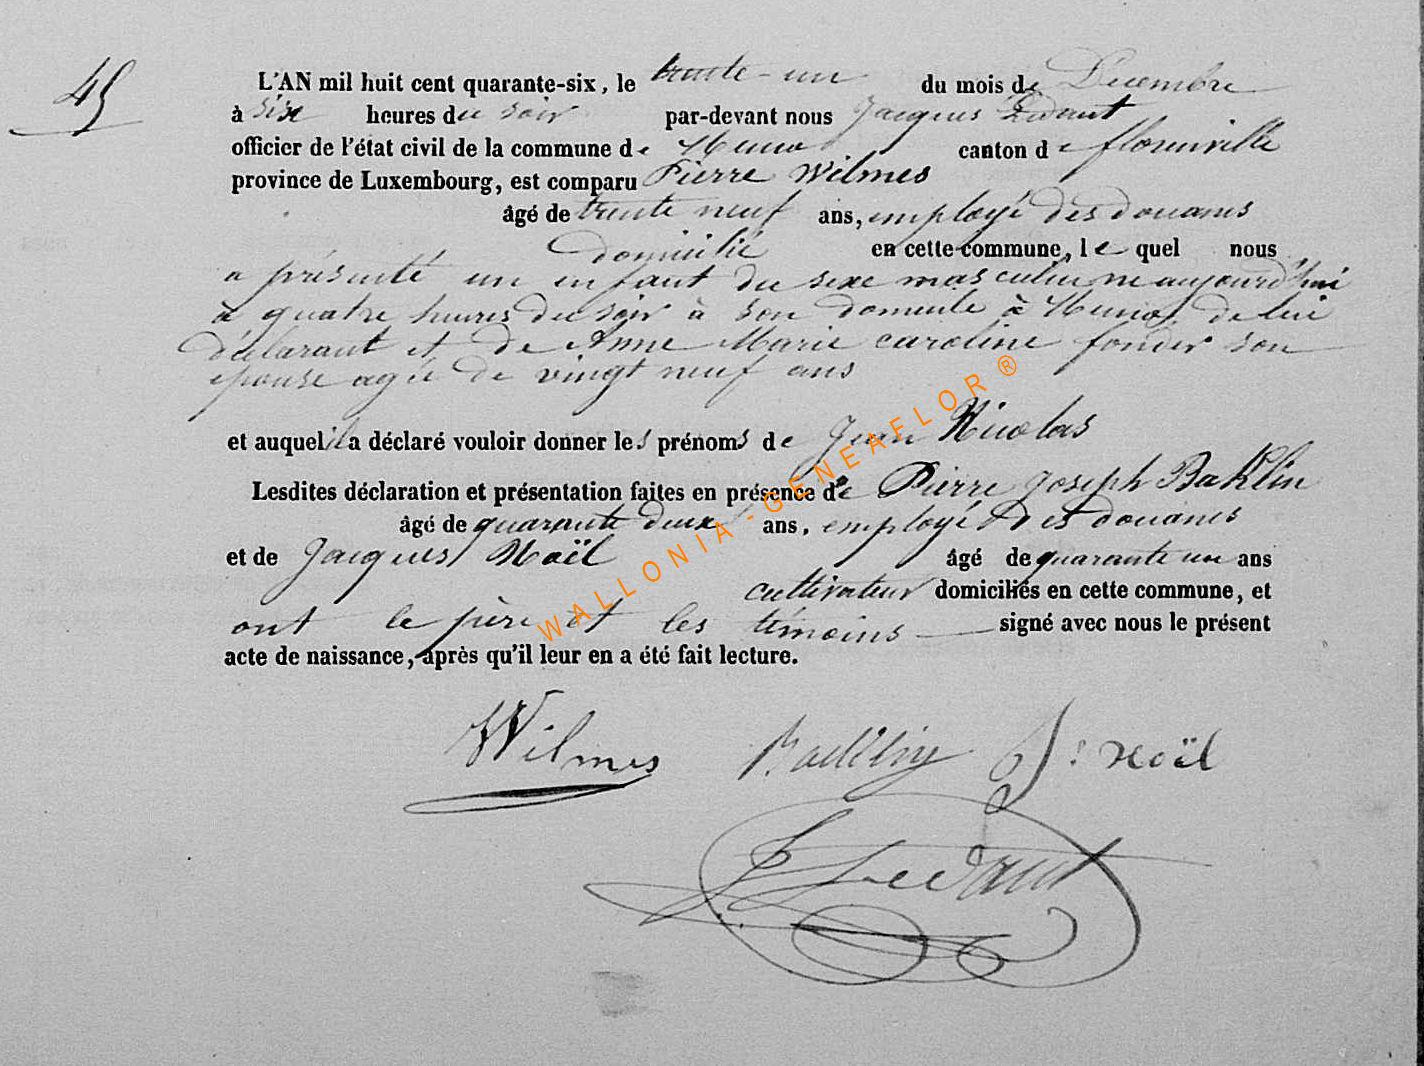 45
L'AN mil huit cent quarante-six, le trente-un du mois de Decembre
à six heures du soir par-devant nous Jacques Ledant
officier de l'état civil de la commune de Muno canton de florenville
province de Luxembourg, est comparu Pierre Wilmes
âgé de trente neuf ans, employé des douanes
domicilié en cette commune, le quel nous
a présenté un enfant du sexe masculin né aujourd'hui
à quatre heures du soir à son domicile à Muno, de lui
déclarant et de Anne Marie caroline fonder son
épouse agée de vingt neuf ans
et auquel il a déclaré vouloir donner les prénoms de Jean Nicolas
Lesdites déclaration et présentation faites en présence de Pierre Joseph Baklin
âgé de quarante deux ans, employé des douanes
et de Jacques Noël âgé de quarante un ans
cultivateur domiciliés en cette commune, et
ont le père et les témoins signé avec nous le présent
acte de naissance, après qu'il leur en a été fait lecture.
Wilmes J: Noël
J Ledant
WALLONIA-GENEAFLOR®